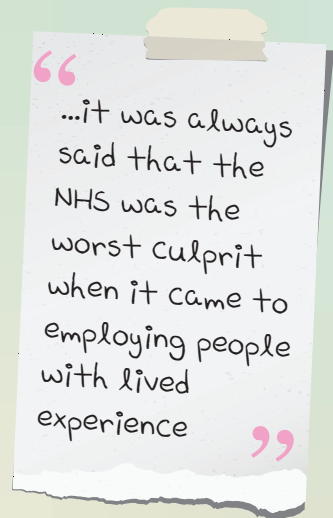 “
...it was always
said that the
NHS was the
worst culprit
when it came to
employing people
with lived
experience
”